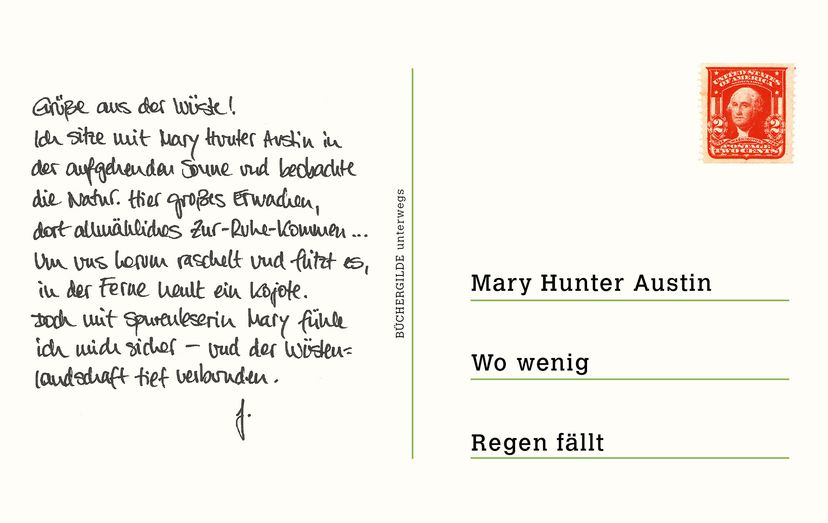 Grüße aus der Wüste!
Ich sitze mit Mary Hunter Austin in
der aufgehenden Sonne und beobachte
die Natur. Hier großes Erwachen,
dort allmähliches Zur-Ruhe-Kommen...
Um uns herum raschelt und flitzt es,
in der Ferne heult ein Kojote.
Doch mit Spurenleserin Mary fühle
ich mich sicher – und der Wüsten=
landschaft tief verbunden.
J.
BÜCHERGILDE unterwegs
UNITED STATES
OF AMERICA
2 2
POSTAGE
TWO CENTS
Mary Hunter Austin
Wo wenig
Regen fällt